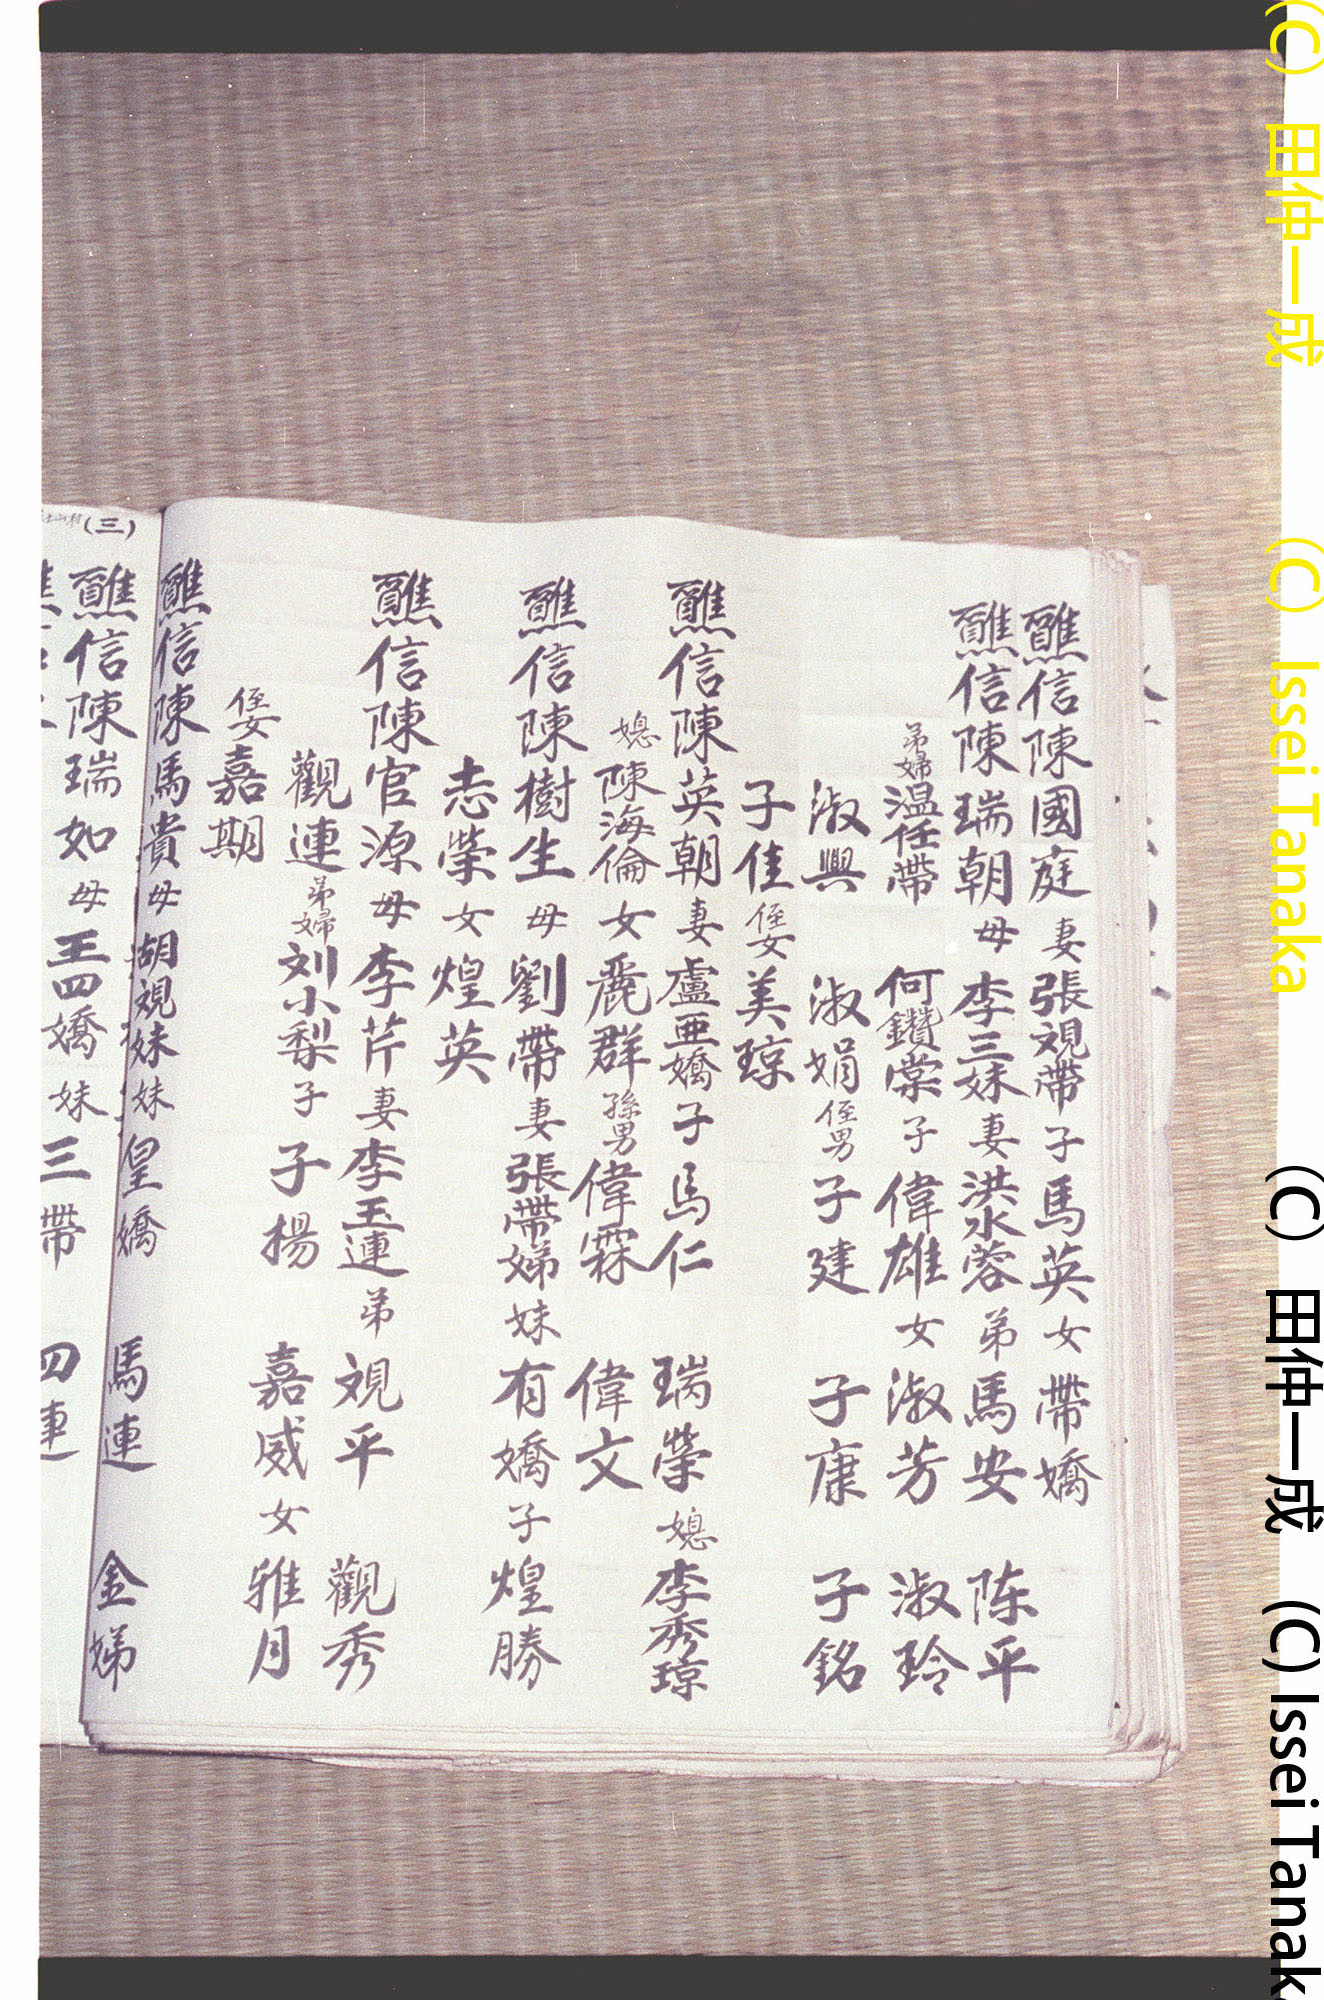 醮信陳國庭 妻 張覌帶 子 馬英 女 帶嬌
醮信陳瑞朝 母 李三妹 妻 洪水蓉 弟 馬安 陈平
弟婦 温任帶 何鑽棠 子 偉雄 女 淑芳 淑玲
淑興 淑娟 侄男 子建 子康 子銘
子佳 侄女 美琼
醮信陳英朝 妻 盧亜嬌 子 馬仁 瑞榮 媳 李秀琼
媳 陳海倫 女 麗群 孫男 偉霖 偉文
醮信陳樹生 母 劉帶 妻 張帶娣 妹 有嬌 子 煌勝
志榮 女 煌英
醮信陳官源 母 李芹 妻 李玉連 弟 覌平 觀秀
觀連 弟婦 刘小梨 子 子揚 嘉威 女 雅月
侄女 嘉期
醮信陳馬貴 母 胡覌妹 妹 皇嬌 馬連 金娣
(三)
醮信陳瑞如 母 王四嬌 妹 三帶 四連
(C) 田仲一成 (C) Issei Tanaka (C) 田仲一成 (C) Issei Tanak